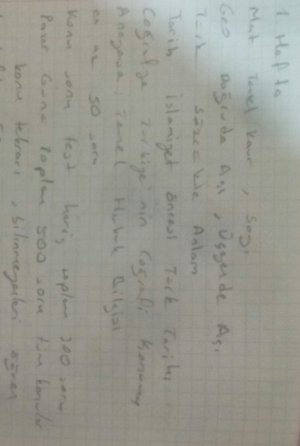 1. Hafta
Mat Temel Kav, Sayı
Geo Doğruda Açı, Üçgende Açı
Türk Sözcükte Anlam
Tarih İslamiyet Öncesi Türk Tarihi
Coğrafya Türkiye'nin Coğrafi Konumu
Anayasa, Temel Hukuk Bilgisi
en az 50 soru
Konu sonu test hariç toplam 300 soru
Pazar Günü toplam 500 soru tüm konular
konu tekrarı, bilinmeyenleri öğren